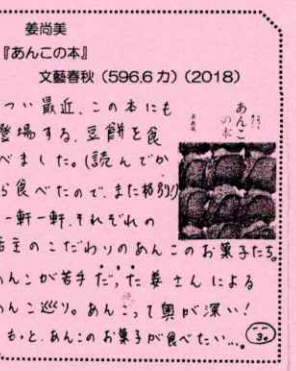 姜尚美
『あんこの本』
文藝春秋 (596.6 カ) (2018)
つい最近、この本にも
登場する、豆餅を食
べました。(読んでか
ら食べたので、また格別!)
一軒一軒、それぞれの
店主のこだわりのあんこのお菓子たち。
あんこが苦手だった姜さんによる
あんこ巡り。あんこって奥が深い!
もっと、あんこのお菓子が食べたい…。
あんこ
の本